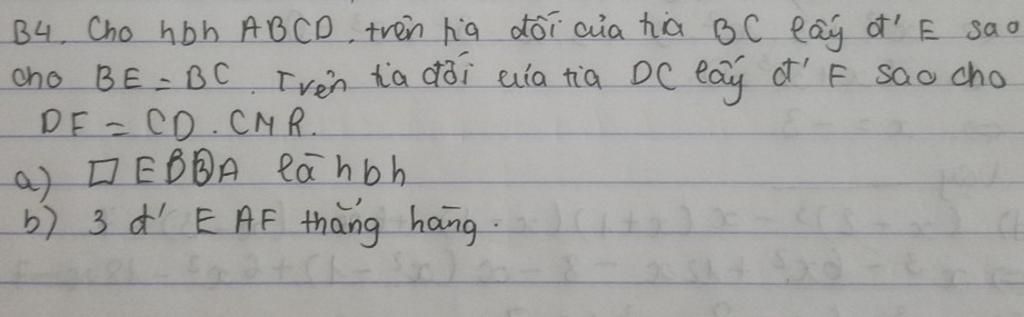 B4. Cho hbh ABCD. trên tia đối của tia BC lấy đ' E sao
cho BE = BC. Trên tia đối của tia DC lấy đ' F sao cho
DF = CD. CMR.
a) □ EBDA là hbh
b) 3 đ' E AF thẳng hàng.